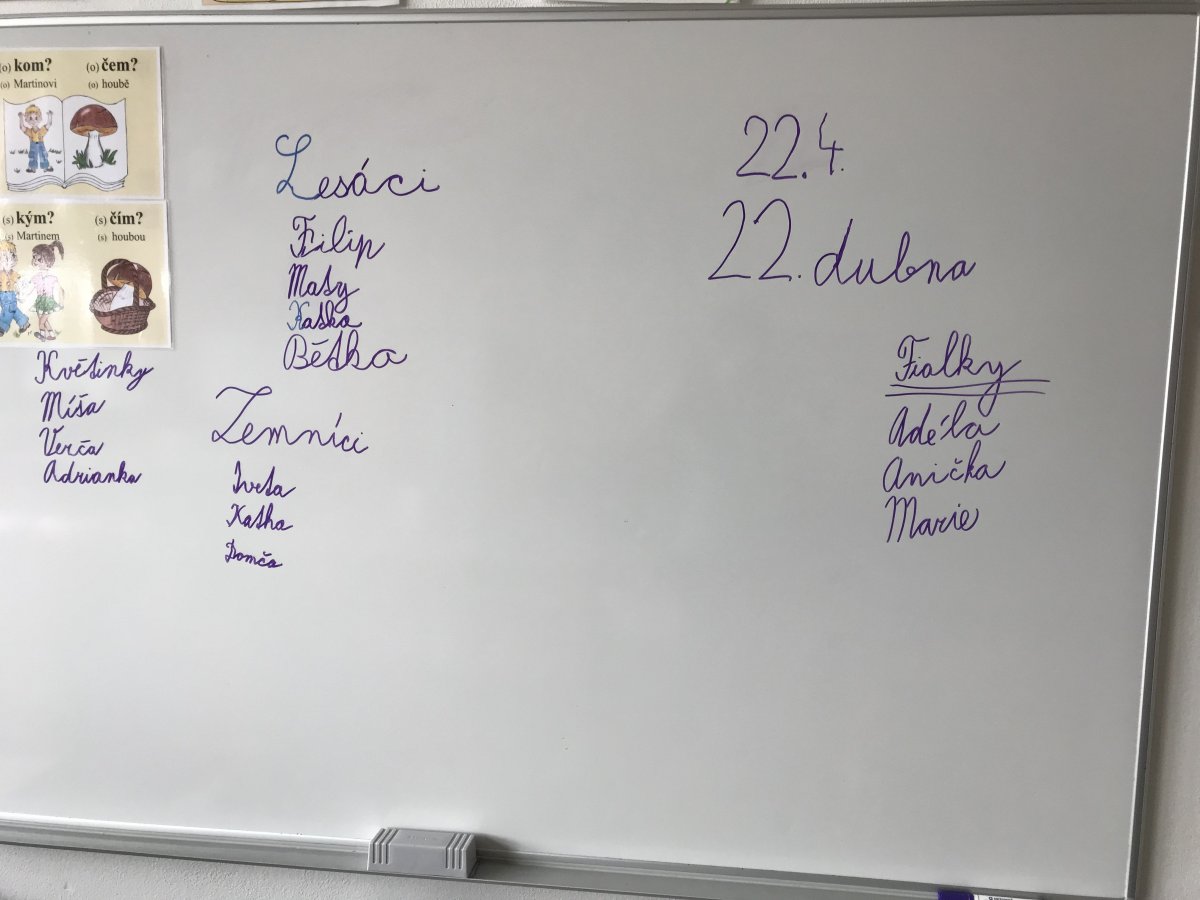 (o) kom? (o) čem?
(o) Martinovi (o) houbě
(s) kým? (s) čím?
(s) Martinem (s) houbou
Květinky
Míša
Verča
Adrianka
Lesáci
Filip
Maty
Katka
Bětka
Zemníci
Iveta
Katka
Domča
22.4.
22. dubna
Fialky
Adéla
Anička
Marie